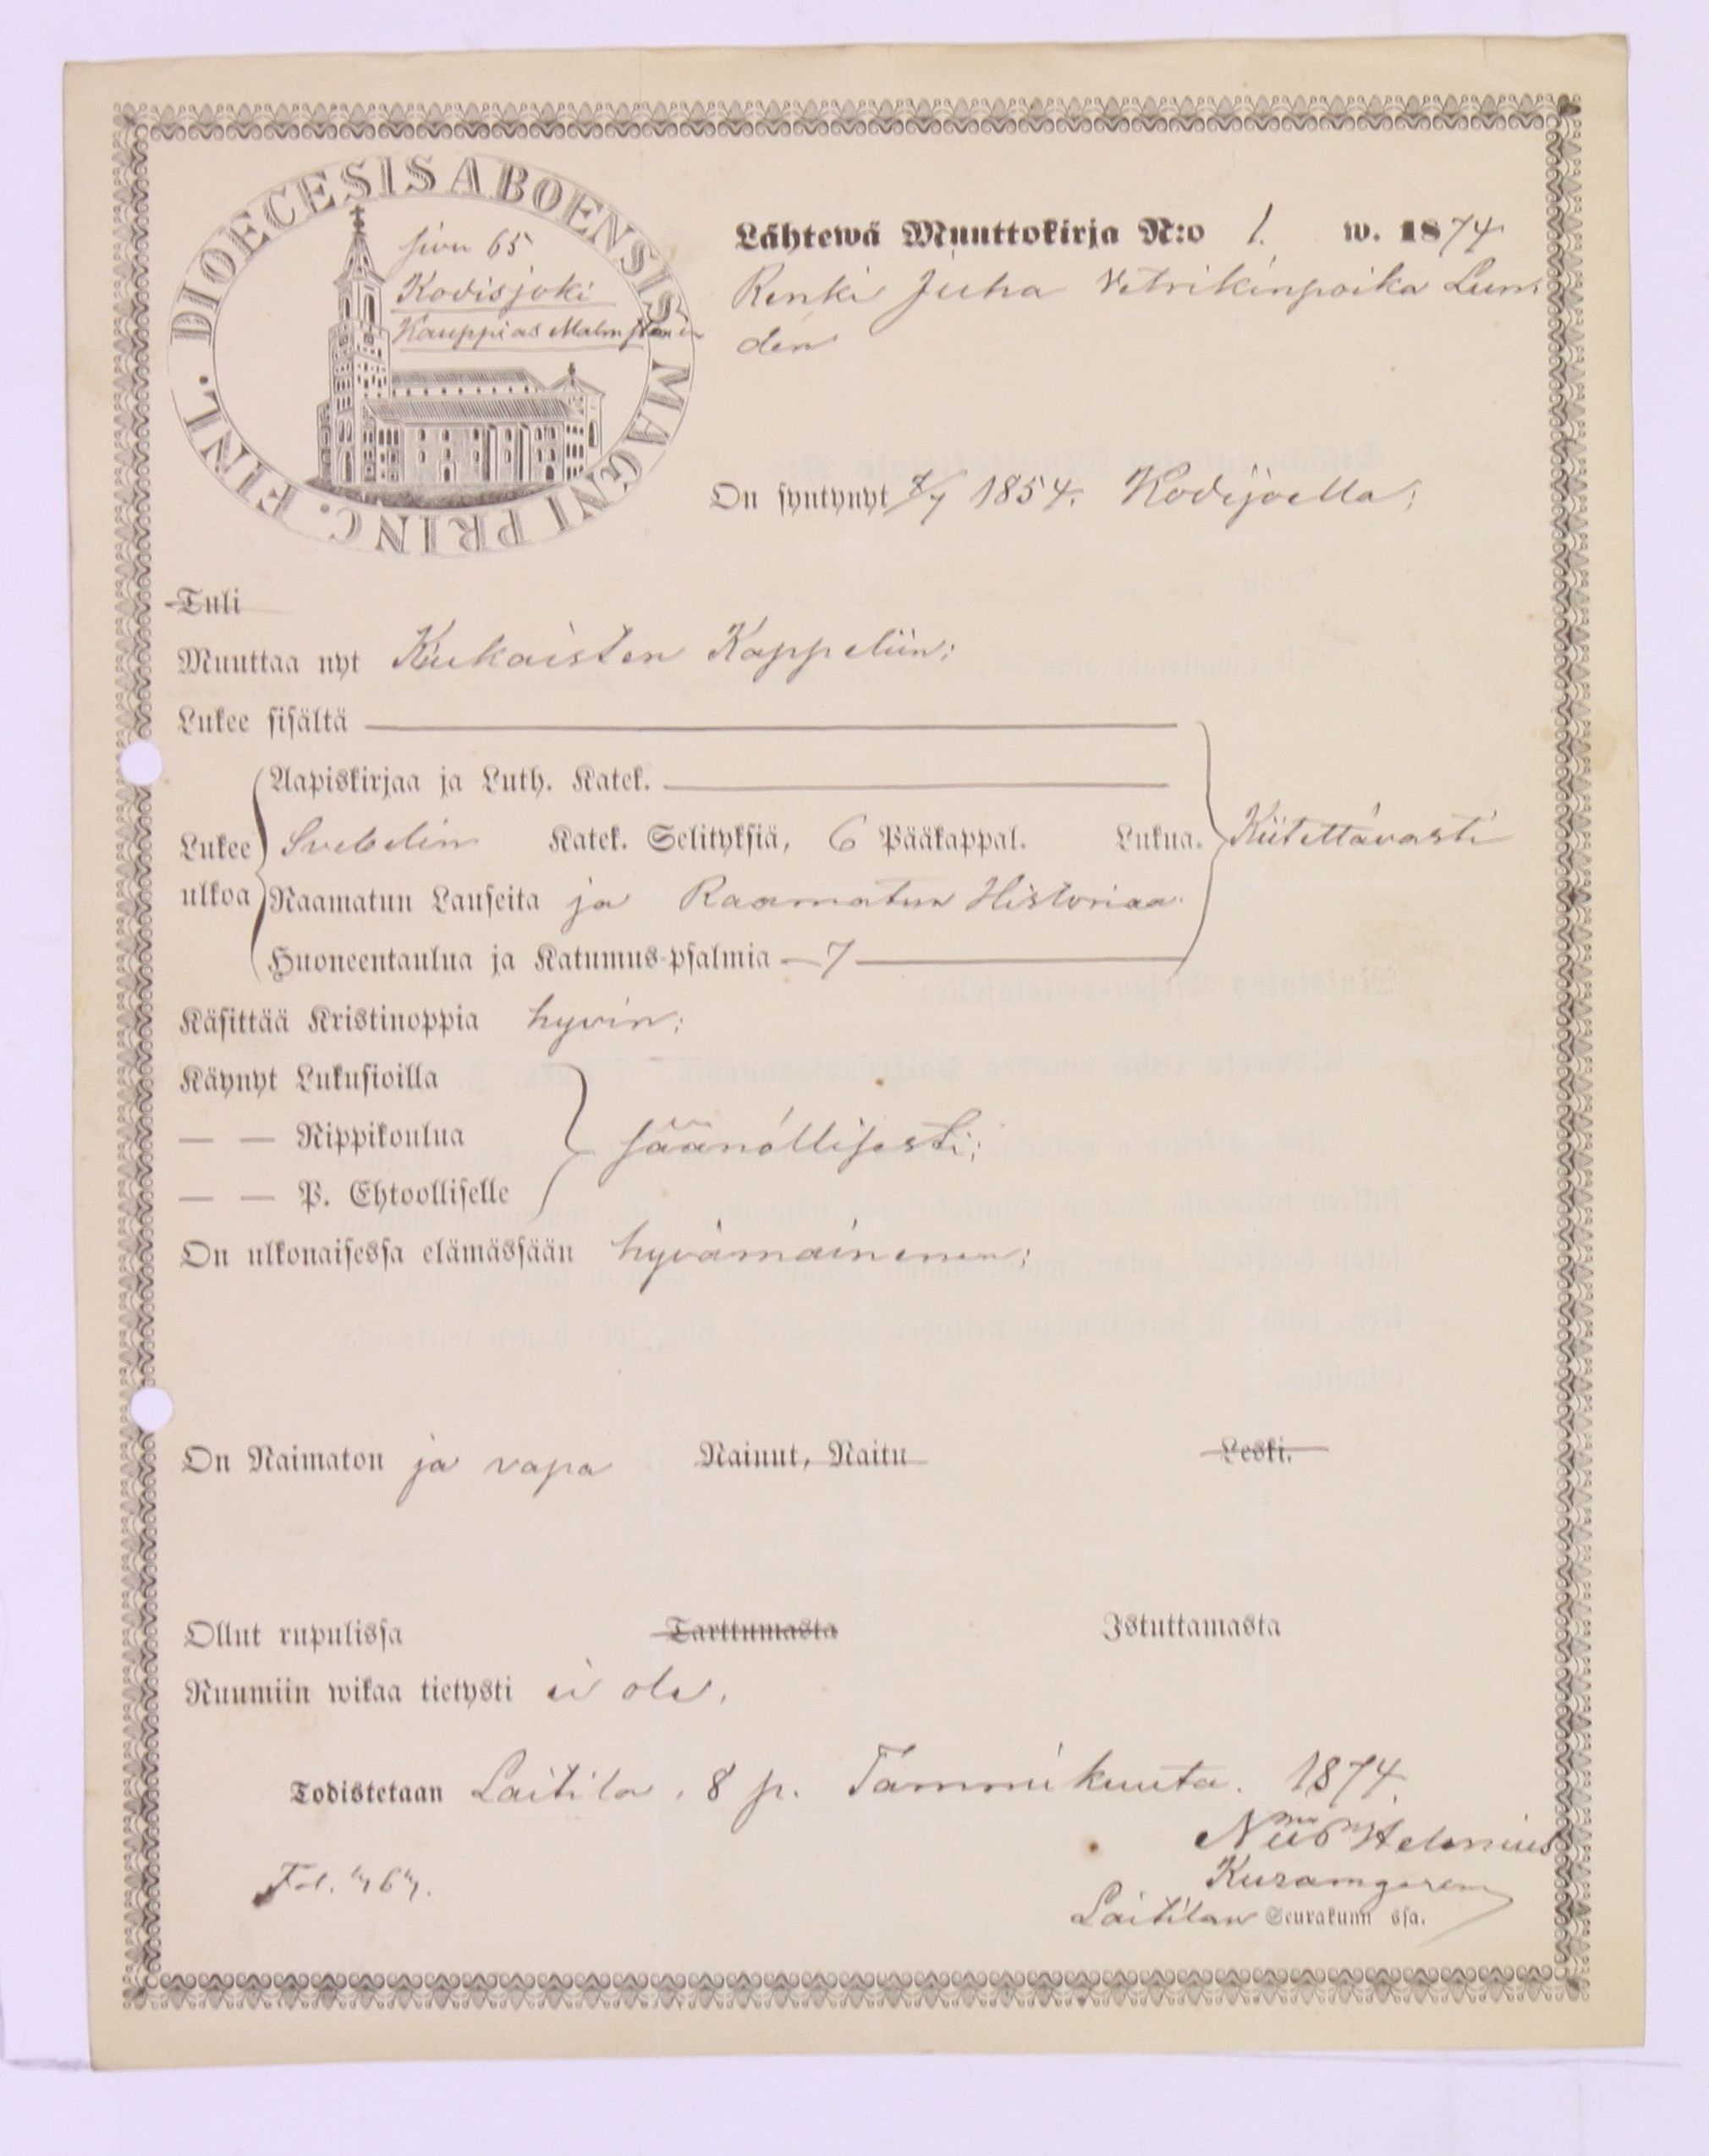 DIOECESIS ABOENSIS MAGNI PRINC. FINL.
sivu 65
Kodisjoki
Kauppias Malmsten
Lähtewä Muuttokirja N:o 1. w. 1874
Renki Juha Vetrikinpoika Lun
den
On syntynyt 7/7 1854. Kodijoella;
Tuli
Muuttaa nyt Kiukaisten Kappeliin;
Lukee sisältä
Aapiskirjaa ja Luth. Katek.
Lukee ulkoa
Svebelin Katek. Selityksiä, 6 Pääkappal. Lukua. Kiitettävästi
Raamatun Lauseita ja Raamatun Historiaa.
Huoneentaulua ja Katumus-psalmia — 7
Käsittää Kristinoppia hyvin;
Käynyt Lukusioilla
— — Rippikoulua säänöllisesti;
— — P. Ehtoolliselle
On ulkonaisessa elämässään hyvämainenen;
On Naimaton ja vapa Nainut, Naitu Leski.
Ollut rupulissa Tarttumasta Istuttamasta
Ruumiin wikaa tietysti ei ole.
Todistetaan Laitila, 8 p. Tammikuuta. 1874.
Helenius
Fol.
Laitilan Seurakunn ssa.